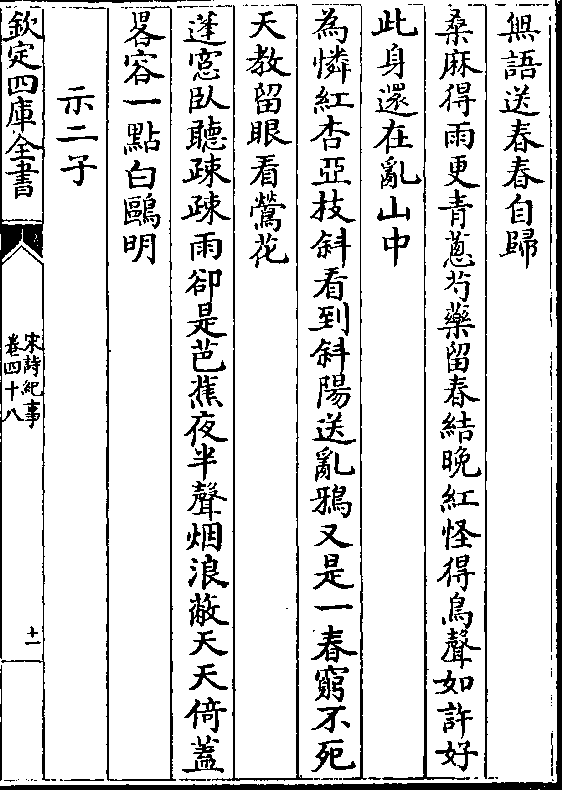 無語送春春自歸
桑麻得雨更青蔥芍藥留春結晚紅怪得鳥聲如許好
此身還在亂山中
為憐紅杏亞枝斜看到斜陽送亂鴉又是一春窮不死
天教留眼看鶯花
蓬窓臥聽疎疎雨卻是芭蕉夜半聲烟浪蔽天天倚蓋
畧容一點白鷗明
示二子
欽定四庫全書
宋詩紀事
卷四十八
十一